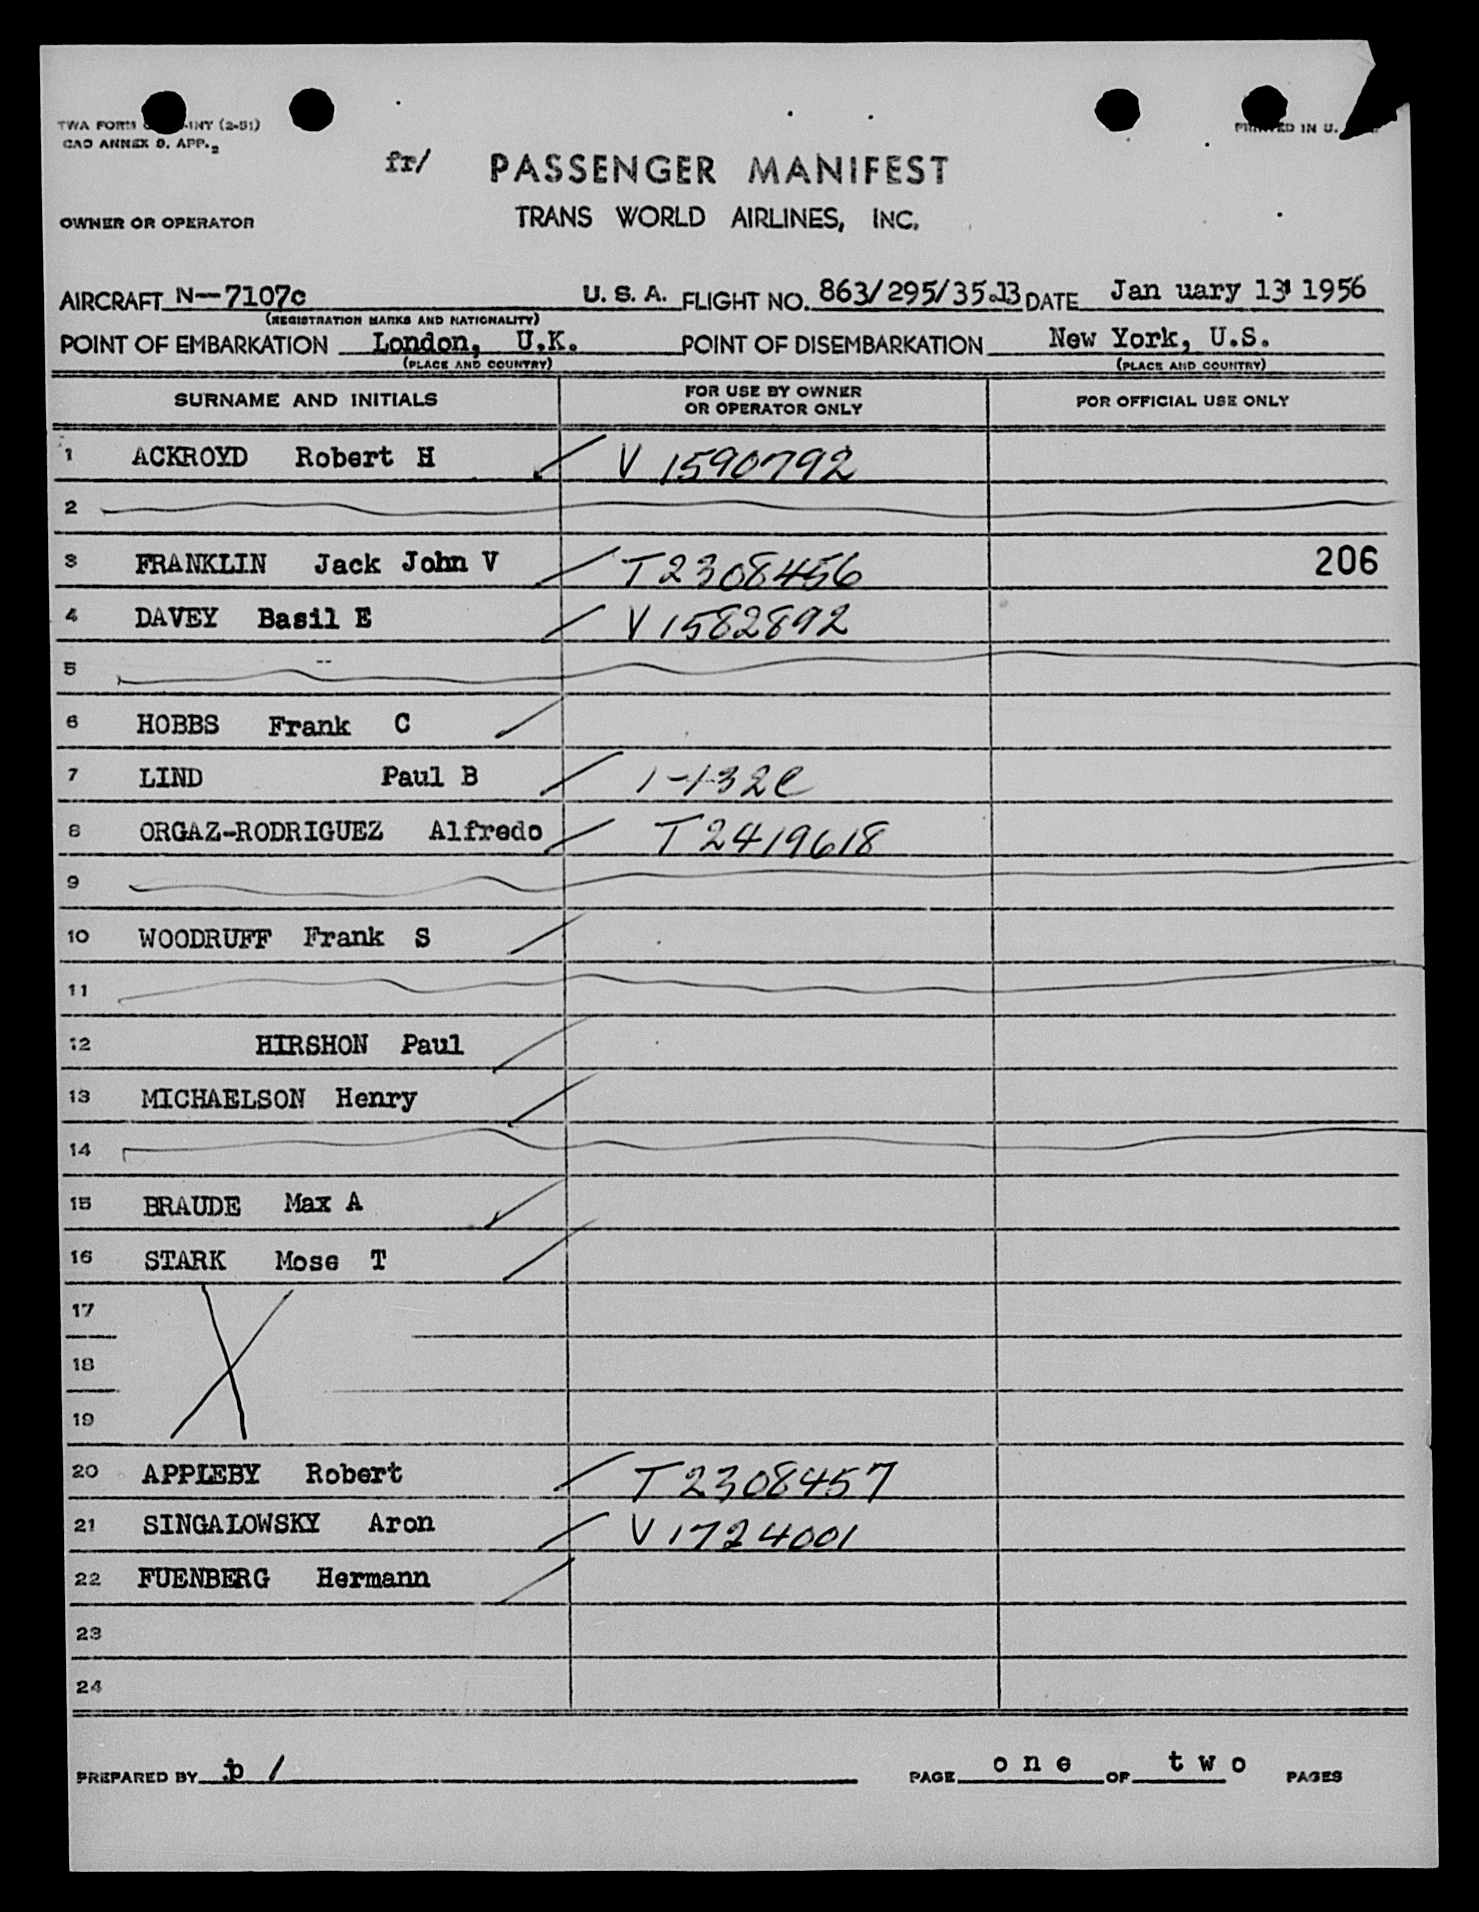 TWA FORM -INT (2-51)
CAO ANNEX 9. APP. 2
PRINTED IN U.
fr/ PASSENGER MANIFEST
OWNER OR OPERATOR
TRANS WORLD AIRLINES, INC.
AIRCRAFT N-7107c U. S. A. FLIGHT NO. 863/295/35.13 DATE Jan uary 13 1956
(REGISTRATION MARKS AND NATIONALITY)
POINT OF EMBARKATION London, U.K. POINT OF DISEMBARKATION New York, U.S.
(PLACE AND COUNTRY) (PLACE AND COUNTRY)
SURNAME AND INITIALS FOR USE BY OWNER OR OPERATOR ONLY FOR OFFICIAL USE ONLY
1 ACKROYD Robert H V 1590792
2
3 FRANKLIN Jack John V T2308456 206
4 DAVEY Basil E V1582892
5 --
6 HOBBS Frank C
7 LIND Paul B 1-132C
8 ORGAZ-RODRIGUEZ Alfredo T2419618
9
10 WOODRUFF Frank S
11
12 HIRSHON Paul
13 MICHAELSON Henry
14
15 BRAUDE Max A
16 STARK Mose T
17
18
19
20 APPLEBY Robert T2308457
21 SINGALOWSKY Aron V1724001
22 FUENBERG Hermann
23
24
PREPARED BY jp / PAGE one OF two PAGES